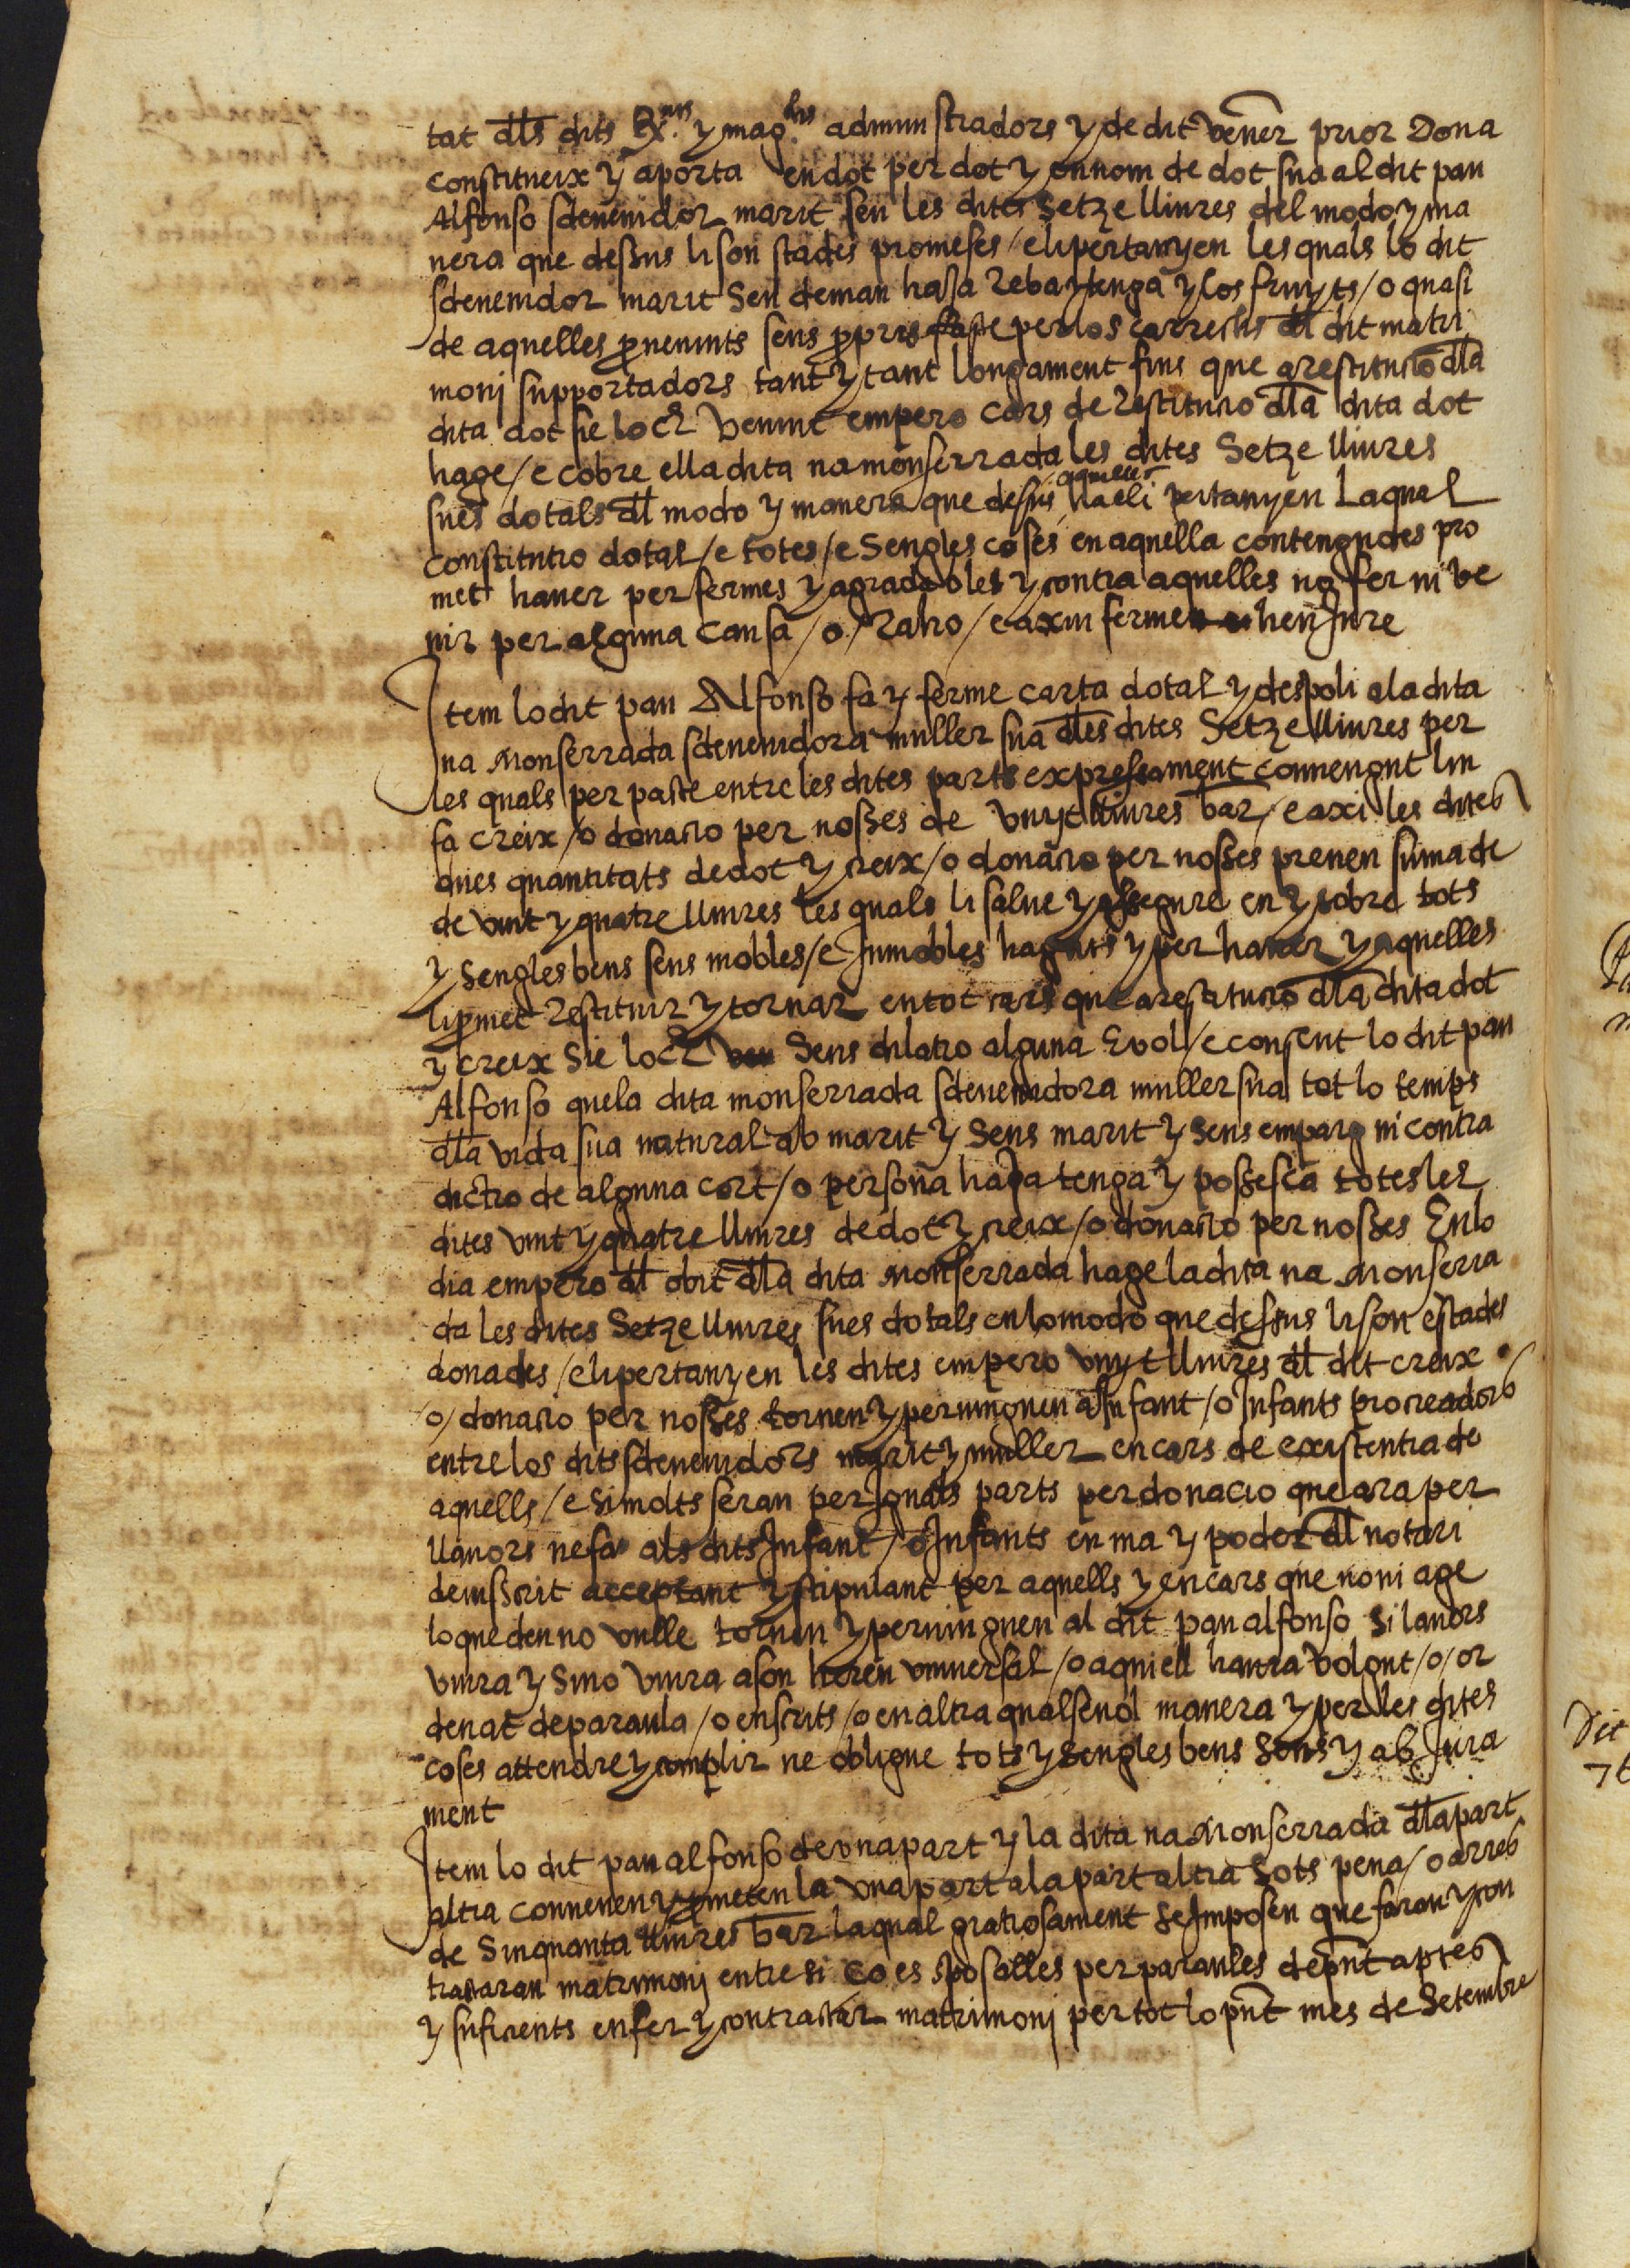 tat dls dits Rx.nts y mag.chs administradors y de dit vener prior Dona
constitueix y aporta en dot per dot y en nom de dot sua al dit pau
Alfonso sdevenidor marit seu les dites Setze lliures del modo y ma
nera que dessus li son stades promeses / e li pertanyen les quals lo dit
sdevenidor marit seu deman haja reba y tenga y los fruyts / o quasi
de aquelles pvenints sens propris faste per los carrechs dl dit matri
monj supportadors tant y tant longament fins que a restitutio dla
dita dot sie loch venint empero cars de restitutio dla dita dot
hage / e cobre ella dita na monserrada les dites Setze lliures
sues dotals dl modo y manera que desus aquelles ha e li pertanyen Laqual
constitutio dotal / e totes / e Sengles coses en aquella contengudes pro
met haver per fermes y agradobles y contra aquelles no fer ni ve
nir per alguna causa / o / Raho / e axin ferme hen Jure
Item lo dit pau Alfonso fa y ferme carta dotal y despoli a la dita
na Monserrada sdevenidora muller sua dles dites Setze lliures per
les quals per paste entre les dites parts expressament convengut lin
fa creix / o donatio per nosses de vuyt lliures bar / e axi les dites
dues quantitats de dot y creix / o donatio per nosses prenen suma de
de vint y quatre lliures les quals li salve y assegure en y sobre tots
y Sengles bens seus mobles / e Inmobles haguts y per haver y aquelles
li pmet Restituir y tornar en tot cars que a restitutio dla dita dot
y creix Sie loch Sens dilatio alguna E vol / e consent lo dit pau
Alfonso que la dita monserrada sdevenidora muller sua tot lo temps
dla vida sua natural ab marit y Sens marit y Sens empaig ni contra
dictio de alguna cort / o persona haja tenga y possesca totes les
dites vint y quatre lliures de dot y creix / o donatio per nosses En lo
dia empero dl obit dla dita Monserrada hage la dita na Monserra
da les dites Setze lliures sues dotals en lo modo que dessus li son estades
donades / e li pertanyen les dites empero vuyt lliures dl dit creix
/o/ donatio per nosses tornen y pervinguen a Infant / o Infants procreadors
entre los dits sdevenidors marit y muller en cars de existentia de
aquells / e si molts seran per yguals parts per donacio que ara per
llavors ne fa als dits Infant / o Infants en ma y poder dl notari
devisscrit acceptant y stipulant per aquells y en cars que noni age
lo que deu no vulle tornen y pervinguen al dit pau alfonso Si lavors
viura y Sino viura a son hereu universal / o a qui ell haura volgut / o / or
denat de paraula / o en scrits / o en altra qualsevol manera y per les dites
coses attendre y complir ne obligue tots y Sengles bens Sens y ab Jura
ment
Item lo dit pau alfonso de una part y la dita na Monserrada dla part
altra convenen y pmeten la una part a la part altra Sots pena / o arres
de Sinquanta lliures bar la qual gratiosament se Imposen que faran y con
trataran matrimonj entre si ço es sposalles per paraules de pnt aptes
y suficients en fer y contractar matrimonj per tot lo pnt mes de Setembre